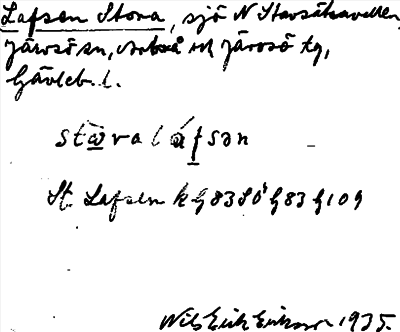 Lafsen Stora, sjö N Stavsätravallen,
Järvsö sn, också i Järvsö tg,
Gävleb. l.
stɷ̄valáfsən
St. Lafsen k G83SÖ G83 G109
Nils Erik Eriksson 1935.